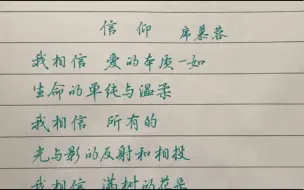 信仰 席慕蓉
我相信 爱的本质一如
生命的单纯与温柔
我相信 所有的
光与影的反射和相投
我相信 满树的花朵